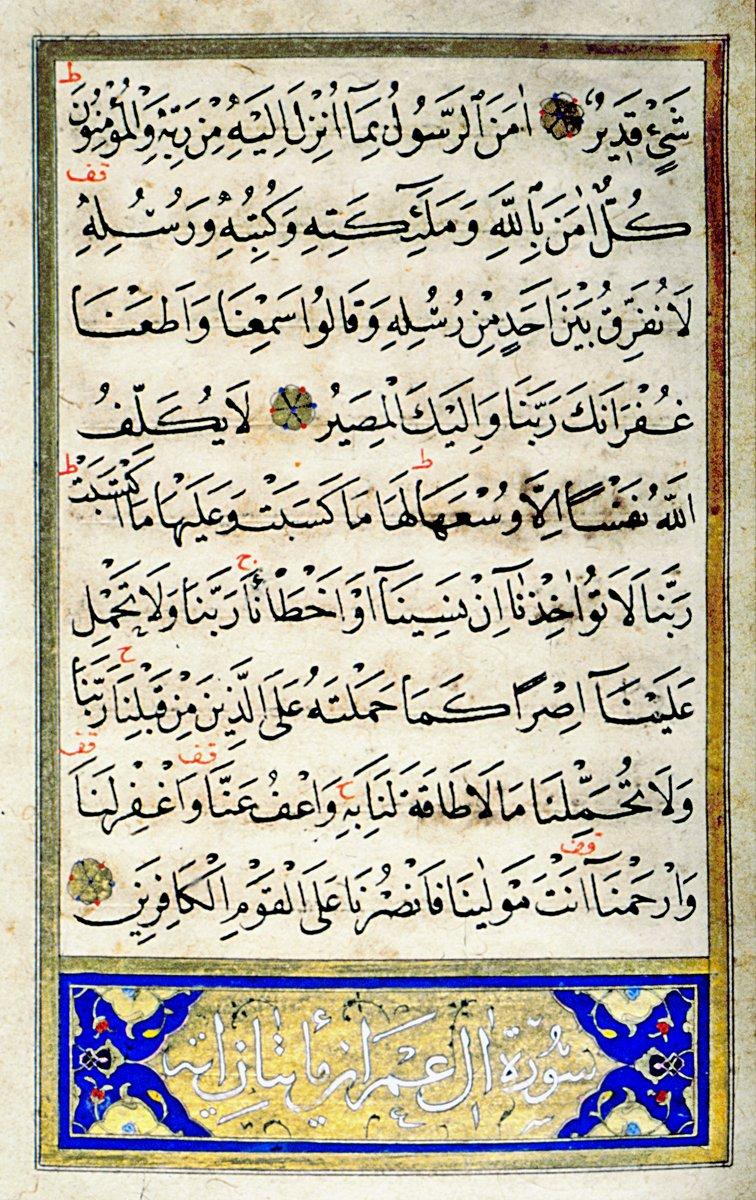 شَيْءٍ قَدِيرٌ اٰمَنَ الرَّسُولُ بِمَا اُنْزِلَ اِلَيْهِ مِنْ رَبِّهِ وَالْمُؤْمِنُونَ ط
كُلٌّ اٰمَنَ بِاللّٰهِ وَمَلٰئِكَتِهِ وَكُتُبِهِ وَرُسُلِهِ قف
لَا نُفَرِّقُ بَيْنَ اَحَدٍ مِنْ رُسُلِهِ وَقَالُوا سَمِعْنَا وَاَطَعْنَا
غُفْرَانَكَ رَبَّنَا وَاِلَيْكَ الْمَصِيرُ لَا يُكَلِّفُ
اللّٰهُ نَفْسًا اِلَّا وُسْعَهَا ط لَهَا مَا كَسَبَتْ وَعَلَيْهَا مَا اكْتَسَبَتْ ط
رَبَّنَا لَا تُؤَاخِذْنَٓا اِنْ نَسِينَٓا اَوْ اَخْطَأْنَا ج رَبَّنَا وَلَا تَحْمِلْ
عَلَيْنَٓا اِصْرًا كَمَا حَمَلْتَهُ عَلَى الَّذِينَ مِنْ قَبْلِنَا ج رَبَّنَا
وَلَا تُحَمِّلْنَا مَا لَا طَاقَةَ لَنَا بِهِ ج وَاعْفُ عَنَّا قف وَاغْفِرْ لَنَا قف
وَارْحَمْنَا قف اَنْتَ مَوْلٰينَا فَانْصُرْنَا عَلَى الْقَوْمِ الْكَافِرِينَ
سُورَةُ اٰلِ عِمْرَانَ مِائَتَانِ اٰيَة